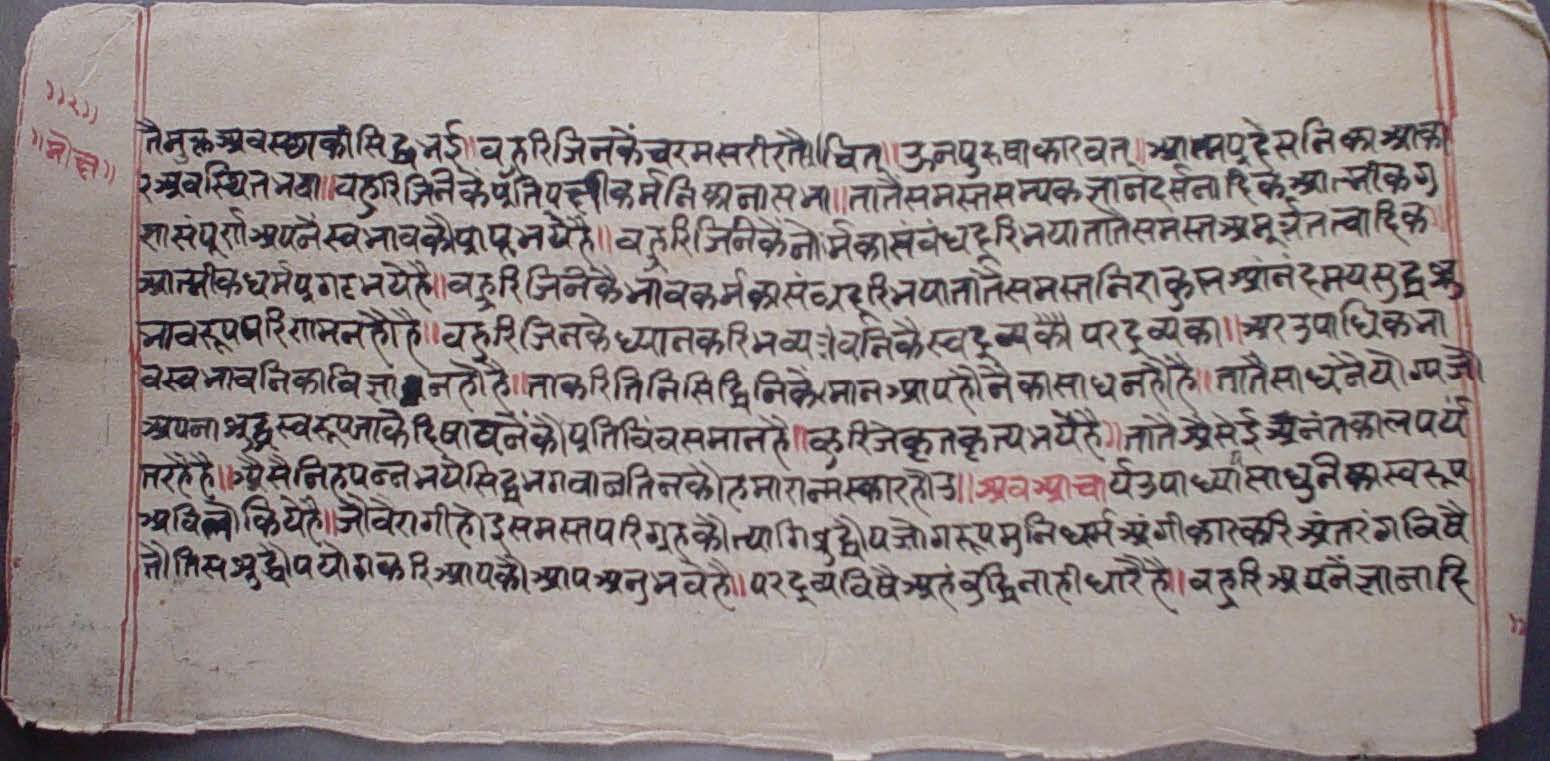 ॥२॥
॥मोक्ष॥
तैमुक्तअवस्छाकी सिद्धभई॥वहुरिजिनकेंचरमसरीरतैं॥किंचित्॥ऊनपुरुषाकारवत्॥आत्मप्रदेसनिकाआका
रअवस्थितभया॥वहुरिजिनिकेप्रतिपक्षीकर्मनिकानासभा॥तातैसमस्तसम्यकज्ञानदर्सनादिकआत्मीकगु
णसंपूर्णअपनैस्वभावकौप्राप्तभयेहै॥वहुरिजिनिकैंनोकर्मकासंवंधदूरिभयातातैसमस्तअमूर्त्तत्वादिक
आत्मीकधर्मप्रगटभयेहै॥वहुरिजिनिकैभावकर्मकासंवंधदूरिभयातातैसमस्तनिराकुलआनंदमयसुद्धसु
भावरूपपरिणमनहौहै॥वहुरिजिनकेध्यानकरिभव्यजीवनिकैस्वद्रव्यकौपरद्रव्यका॥अरउपाधिकभा
वस्वभावनिकाविज्ञाननहोहै॥ताकरितिनिसिद्धिनिकेसमानआपहौनैकासाधनहौहै॥तातैसाधनैयोग्यजौ
अपनाशुद्धस्वरूपताकेदिषावनैंकौप्रतिविंवसमानहै॥वहुरिजेकृतकृत्यभयेहै॥तातैअैसेईअनंतकालपर्यं
तरहैहै॥अैसैनिहपन्नभयेसिद्धभगवानतिनकौहमारानमस्कारहोउ॥अवआचार्यउपाध्यायसाधुनिकास्वरूप
अविलोकियेहै॥जौवैरागीहोइसमस्तपरिग्रहकौत्यागिशुद्धोपजोगरूपमुनिधर्मअंगीकारकरिअंतरंगविषै
तौतिसशुद्धोपयोगकरिआपकौआपअनुभवेहै॥परद्रव्यविषैअहंवुद्धिनाहीधारैहै॥वहुरिअपनैज्ञानादि